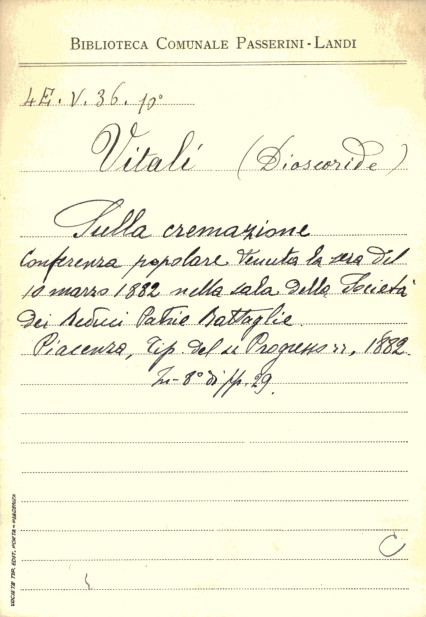 BIBLIOTECA COMUNALE PASSERINI-LANDI
4E. V. 36. 10°
Vitali (Dioscoride)
Sulla cremazione
Conferenza popolare tenuta la sera del
10 marzo 1882 nella sala della Società
dei Reduci Patrie Battaglie.
Piacenza, Tip. del "Progresso", 1882.
In-8° di pp. 29.
C